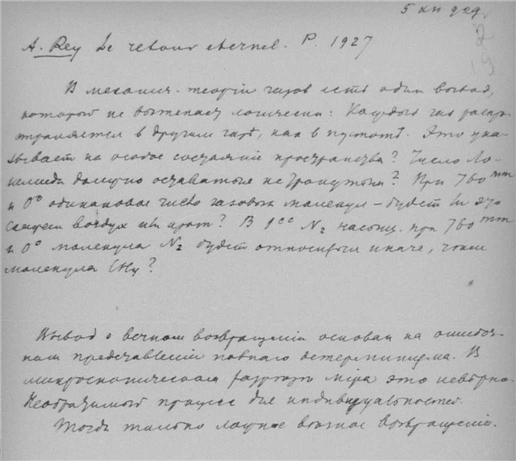 A. Rey Le retour eternel. P. 1927
В механич. теории газов есть один вывод,
который не вытекает логически: Каждый газ распро-
страняется в другом газе, как в пустоте. Это ука-
зывает на особое состояние пространства? Число Ло-
шмидта должно оставаться ? При 760 mm
и 0° одинаковое число газовых молекул – будет ли это
воздух или ? В 1cc N₂ насыщ. при 760 mm
и 0° молекула N₂ будет относиться иначе, чем
молекула CH₄?
Вывод о вечном возвращении основан на ошибоч-
ном представлении полного детерминизма. В
микроскопическом разрезе мира это неверно.
Необратимый процесс для индивидуальностей.
Тогда только ложное вечное возвращение.